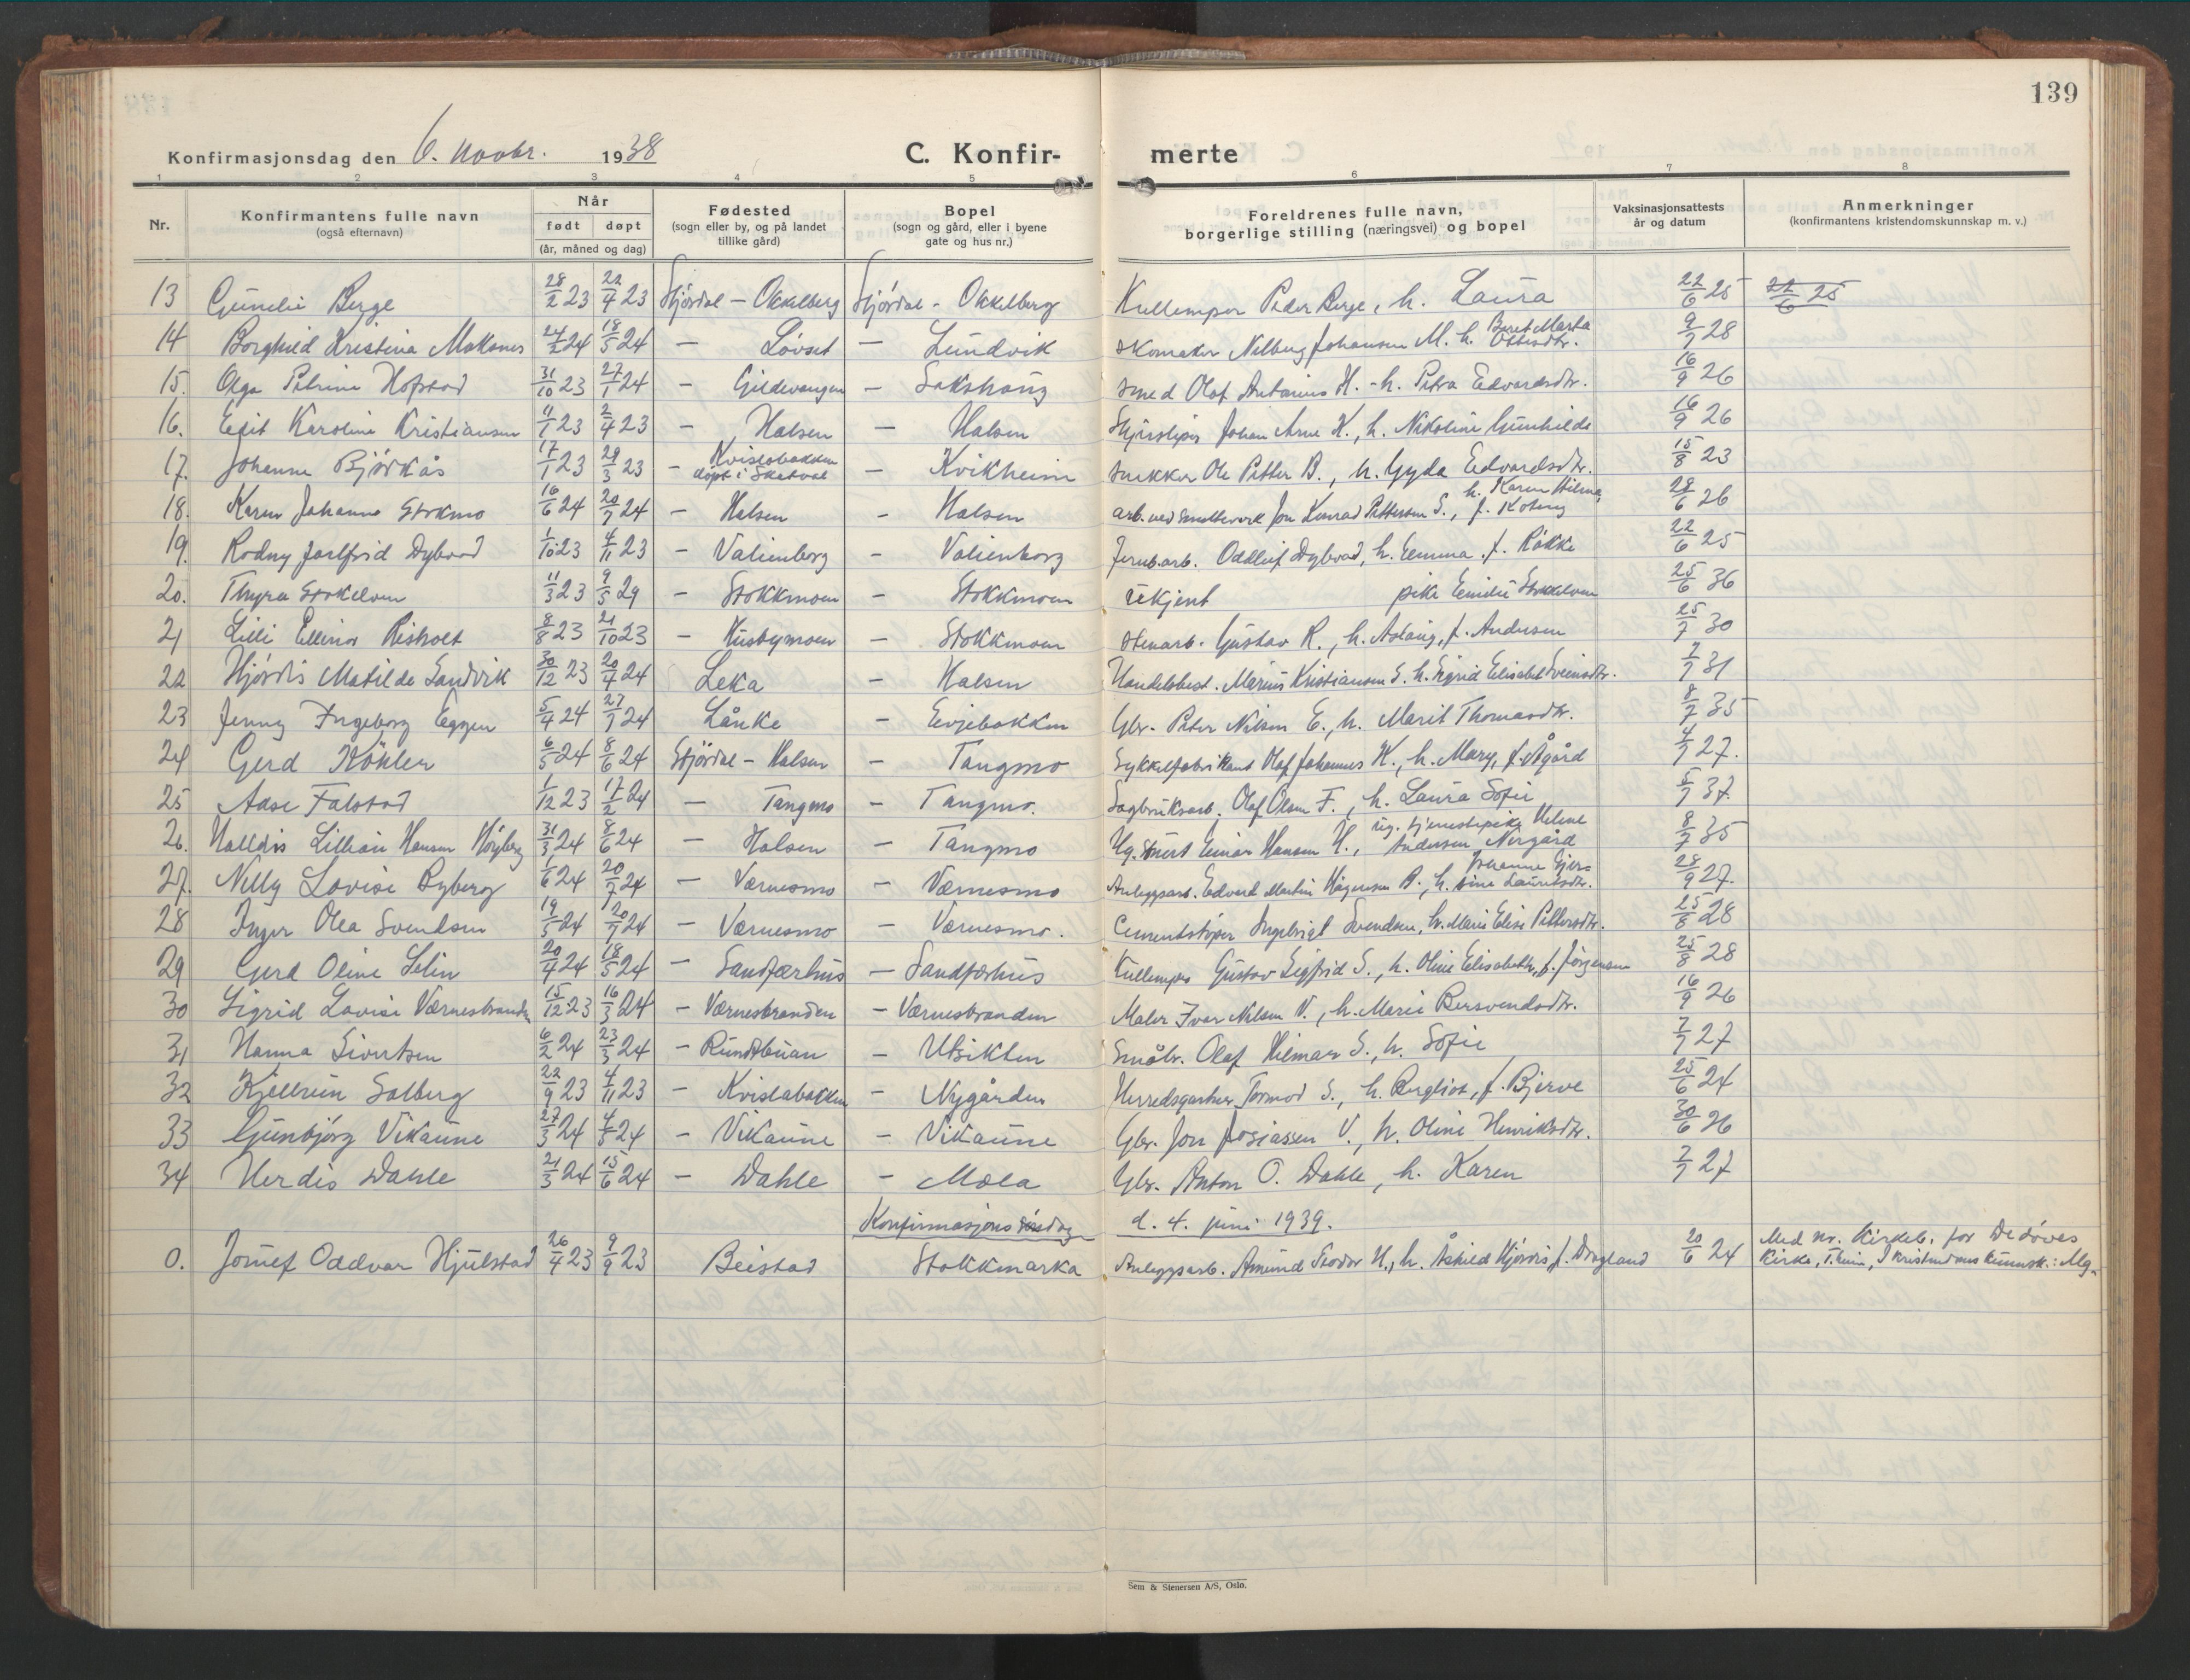 139
Konfirmasjonsdag den 6. novbr. 1938 C. Konfir- merte
1 2 3 4 5 6 7 8
Nr. Konfirmantens fulle navn (også efternavn) Når født døpt (år, måned og dag) Fødested (sogn eller by, og på landet tillike gård) Bopel (sogn og gård, eller i byene gate og hus nr.) Foreldrenes fulle navn, borgerlige stilling (næringsvei) og bopel Vaksinasjonsattests år og datum Anmerkninger (konfirmantens kristendomskunnskap m. v.)
13 Gunelie Berge 28/2 23 22/4 23 Stjørdal - Okkelberg Stjørdal - Okkelberg Peder Berge, h. Laura 22/6 25 22/6 25
14 Borghild Kristina Moksnes 24/2 24 18/5 24 - Løvset - Lundvik skomaker Nilberg Johansen M. h. Beret Marta Ottesdtr. 9/7 28
15. Olga Petrine Hofstad 31/10 23 27/1 24 - Gildevangen - Sakshaug smed Olaf Antonius H. - h. Petra Edvardsdtr. 16/9 26
16. Edit Karoline Kristiansen 11/1 23 2/4 23 - Halsen - Halsen Johan Arne K., h. Nikoline Gunhilde 16/9 26
17. Johanne Bjørkås 17/1 23 29/3 23 - Kvislabakken døpt i Skatval - Kvikheim snekker Ole Petter B., h. Gyda Edvardsdtr. 15/8 23
18. Karen Johanne Stokmo 16/6 24 20/7 24 - Halsen - Halsen arb. ved smelteverk Jon Konrad Pettersen S., h. Karen Hilma, f. Koteng 28/6 26
19. Rodny Jarlfrid Dybvad 1/10 23 4/11 23 - Valienborg - Valienborg Jernb.arb. Oddleif Dybvad, h. Emma f. Røkke 22/6 25
20. Thyra Stokkelven 11/3 23 9/5 29 - Stokkmoen - Stokkmoen Ukjent pike Emilie Stokkelven 25/6 36
21 Lilli Ellinor Risholt 8/8 23 21/10 23 - Husbymoen - Stokkmoen stenarb. Gustav R., h. Aslaug, f. Andersen 25/7 30
22 Hjørdis Matilde Sandvik 30/12 23 20/4 24 Leka - Halsen Handelsbest. Marius Kristiansen S. h. Sigrid Elisabet Sveinsdtr. 7/7 31
23 Jenny Ingeborg Eggen 5/4 24 27/7 24 Lånke - Evjebakken Gbr. Peter Nilsen E., h. Marit Thomasdtr. 8/7 35
24 Gerd Köhler 6/5 24 8/6 24 Stjørdal - Halsen - Tangmo Sykkelfabrikant Olaf Johannes K., h. Mary, f. Ågård 4/7 27.
25 Aase Falstad 1/12 23 17/2 24 - Tangmo - Tangmo. Sagbruksarb. Olaf Olsen F., h. Laura Sofie 5/7 37.
26. Halldis Lillian Hansen Høyberg 31/3 24 8/6 24 - Halsen - Tangmo Ug. Einar Hansen H., ug. tjenestepike Helene Andersen Nergård 8/7 35
27. Nelly Lovise Byberg 1/6 24 20/7 24 - Værnesmo - Værnesmo Anleggsarb. Edvard Martin Hågensen B., h. Johanne Gjersine Lauritsdtr. 28/9 27.
28 Inger Olea Svendsen 19/5 24 20/7 24 - Værnesmo - Værnesmo. Cementstøper Ingebrigt Svendsen, h. Marie Elise Pettersdtr. 25/8 28
29 Gerd Oline Selin 20/4 24 18/5 24 - Sandfærhus - Sandfærhus Gustav Sigfrid S., h. Oline Elisabeth, f. Jørgensen 25/8 28
30 Sigrid Lovise Værnesbranden 15/12 23 16/3 24 - Værnesbranden - Værnesbranden Maler Ivar Nilsen V., h. Marie Bersvendsdtr. 16/9 26
31 Hanna Sivertsen 6/2 24 23/3 24 - Rundtbuan - Utsikten Småbr. Olaf Hilmar S., h. Sofie 7/7 27
32 Kjellrun Solberg 22/9 23 4/11 23 - Kvislabakken - Nygården Herredsgartner Tormod S., h. Bergliot, f. Bjerve 25/6 24
33 Gunbjørg Vikaune 27/3 24 4/5 24 - Vikaune - Vikaune Gbr. Jon Josiassen V., h. Oline Henriksdtr. 30/6 26
34 Herdis Dahle 21/3 24 15/6 24 - Dahle - Mæla Gbr. Anton O. Dahle, h. Karen 7/7 27
Konfirmasjonsdag d. 4. juni 1939.
0. Jomef Oddvar Hjulstad 26/4 23 9/9 23 Beistad Stokkmarka Anleggsarb. Amund Teodor H., h. Åshild Hjørdis f. Dragland 20/6 24 Med nr. Kirkeb. for De døves
Kirke, T.heim, I kristendomskunnsk.: Mg.
Sem & Stenersen A/S, Oslo.